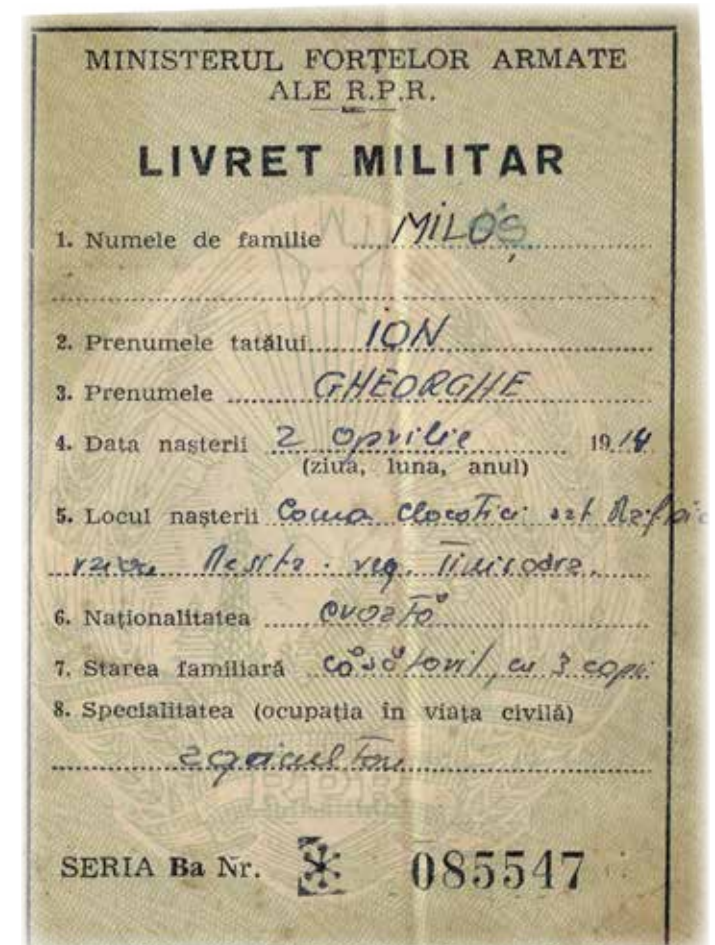 MINISTERUL FORȚELOR ARMATE
ALE R.P.R.
LIVRET MILITAR
1. Numele de familie MILOȘ
2. Prenumele tatălui ION
3. Prenumele GHEORGHE
4. Data nașterii 2 Aprilie 1914
(ziua, luna, anul)
5. Locul nașterii Comuna Clocotici sat
Resita. reg. Timisoara.
6. Naționalitatea croată
7. Starea familiară căsătorit, cu 3 copii
8. Specialitatea (ocupația în viața civilă)
agricultor
RPR
SERIA Ba Nr. 085547